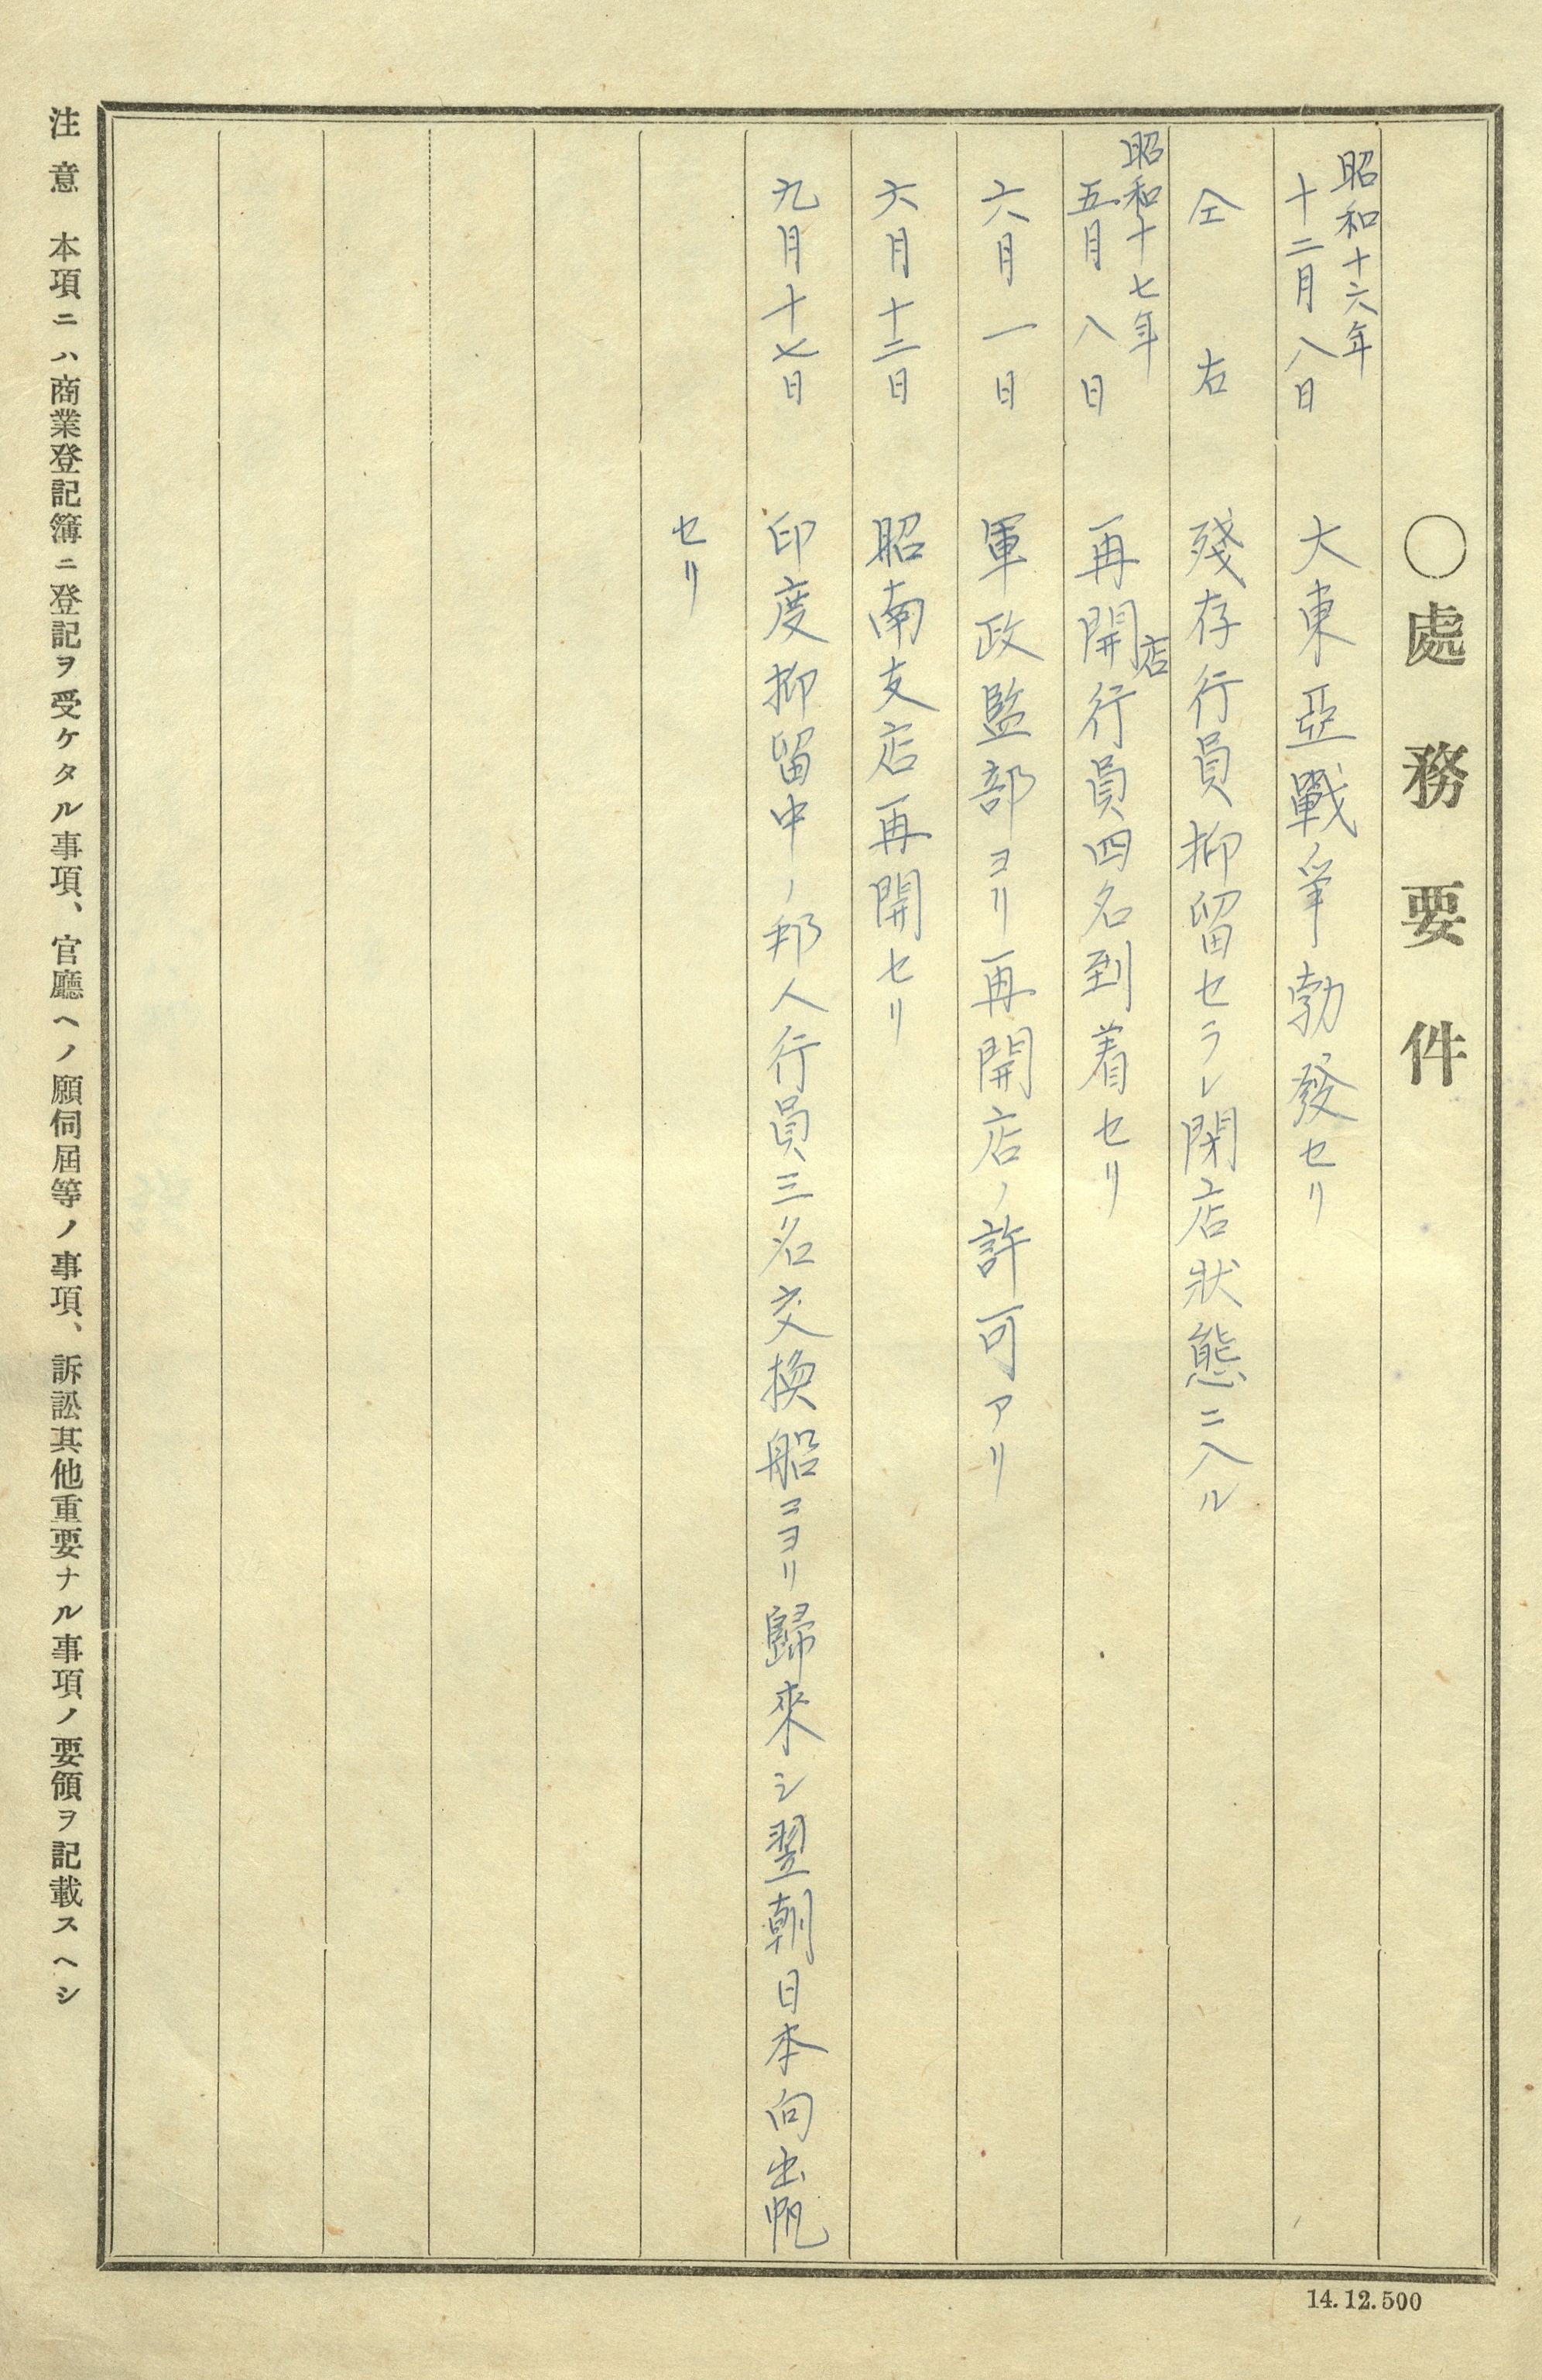 〇處務要件
昭和十六年
十二月八日 大東亞戰爭勃發セリ
仝右 殘存行員抑留セラレ閉店狀態ニ入ル
昭和十七年
五月八日 再開店行員四名到着セリ
六月一日 軍政監部ヨリ再開店ノ許可アリ
六月十二日 昭南支店再開セリ
九月十七日 印度抑留中ノ邦人行員三名交換船ニヨリ歸來シ翌朝日本向出帆
セリ
注意 本項ニハ商業登記簿ニ登記ヲ受ケタル事項、官廳ヘノ願伺屆等ノ事項、訴訟其他重要ナル事項ノ要領ヲ記載スヘシ
14.12.500